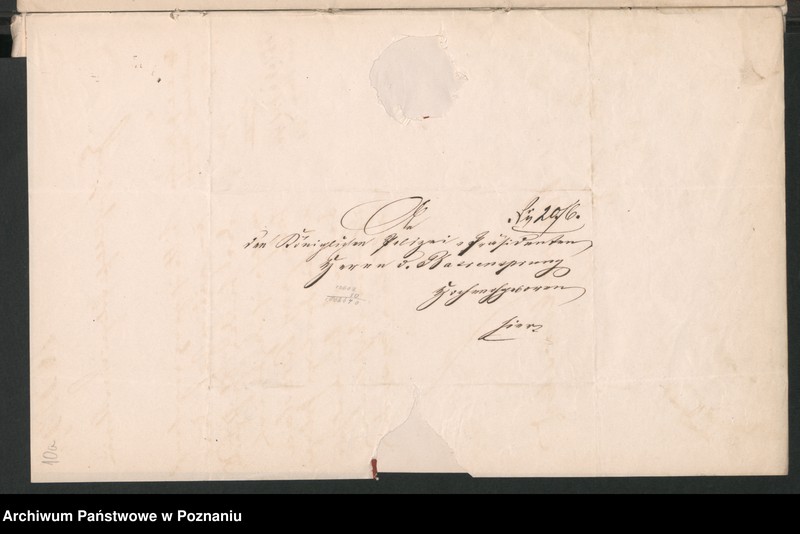 An
den Königlichen Polizei-Präsidenten
Herrn v. Baerensprung
Hochwohlgeboren
hier
10a
Archiwum Państwowe w Poznaniu